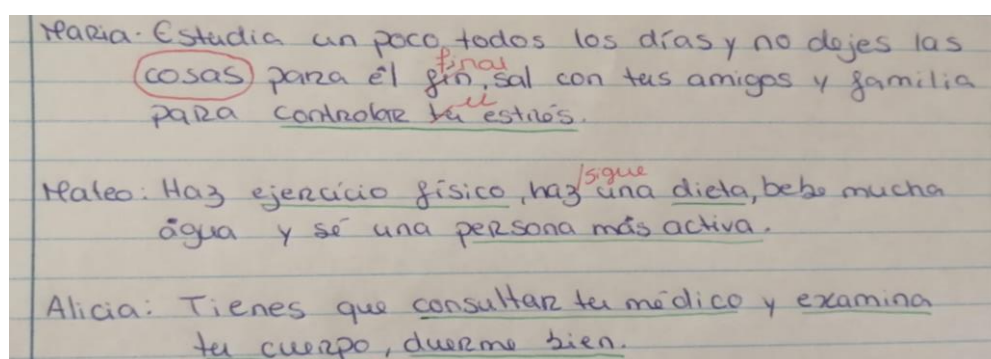 Maria: Estudia un poco todos los días y no dejes las
final
cosas para él fin, sal con tus amigos y familia
para controlar tu estrés.
sigue
Mateo: Haz ejercicio físico, haz una dieta, bebe mucha
água y sé una persona más activa.
Alicia: Tienes que consultar tu médico y examina
tu cuerpo, duerme bien.